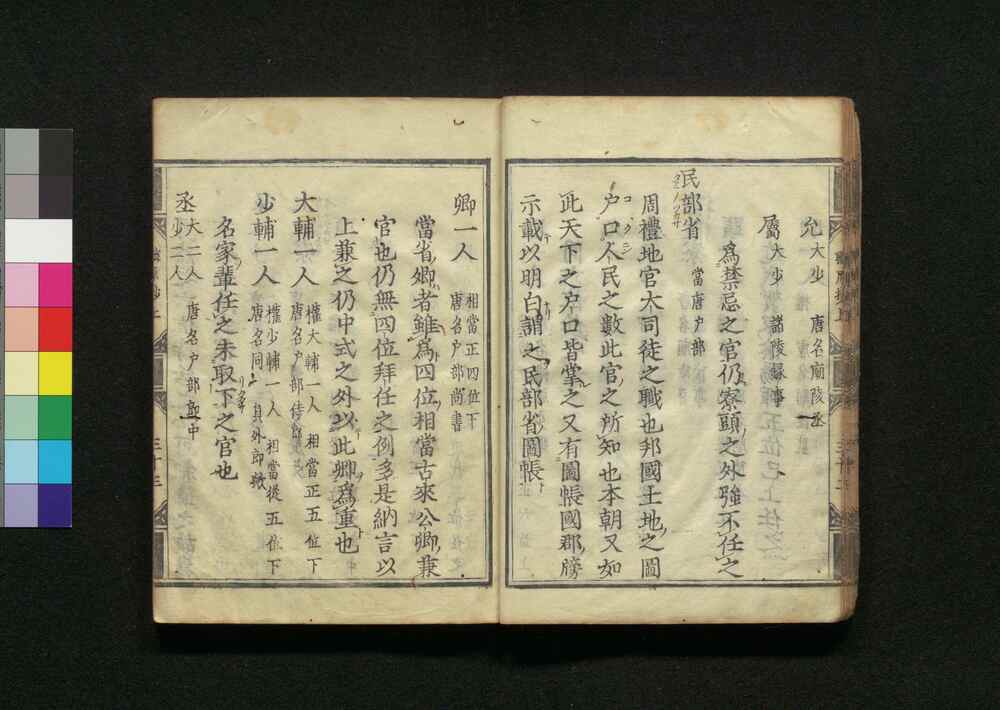 允 大少 唐名廟陵丞
屬 大少 諸陵録事
爲禁忌之官仍寮頭之外強不任之
民部省 當唐戸部
周禮地官大司徒之職也邦國土地之圖
戸口人民之數此官之所知也本朝又如
此天下之戸口皆掌之又有圖帳國郡牓
示載以明白謂之民部省圖帳
卿一人 相當正四位下
唐名戸部尚書
當省卿者雖爲四位相當古來公卿兼
官也仍無四位拜任之例多是納言以
上兼之仍中式之外以此卿爲重也
大輔一人 權大輔一人 相當正五位下
唐名戸部侍郎
少輔一人 權少輔一人 相當從五位下
唐名同上 員外郎歟
名家輩任之未取下之官也
丞 大二人 唐名戸部郎中
少二人